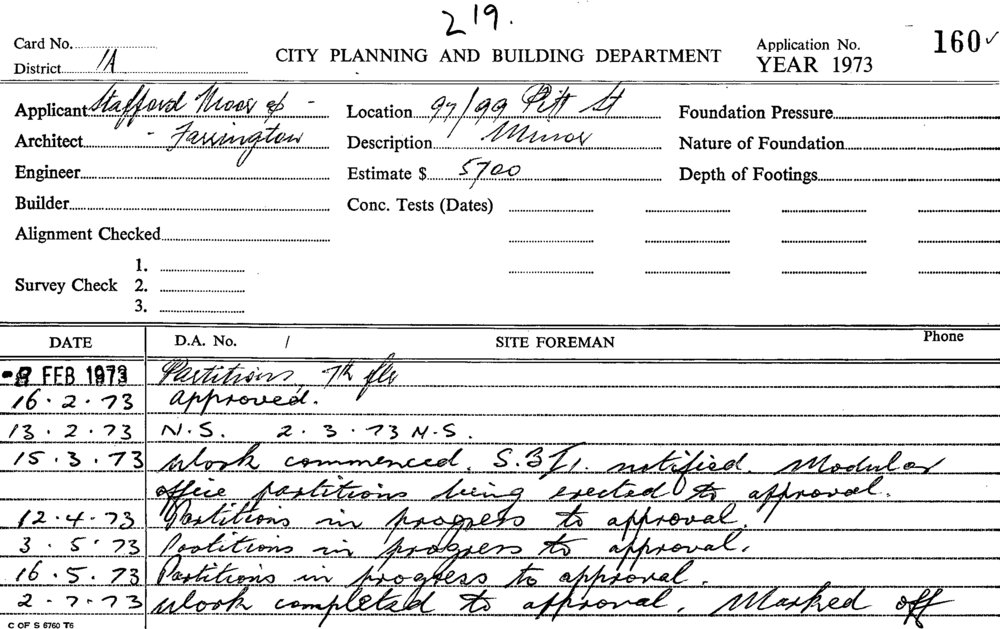 219.
Card No.
District 1A
CITY PLANNING AND BUILDING DEPARTMENT
Application No. 160 ✓
YEAR 1973
Applicant Stafford Moor &
Location 97/99 Pitt St
Foundation Pressure
Architect - Farrington
Description Minor
Nature of Foundation
Engineer
Estimate $ 5700
Depth of Footings
Builder
Conc. Tests (Dates)
Alignment Checked
Survey Check 1.
2.
3.
DATE D.A. No. / SITE FOREMAN Phone
FEB 1973 Partitions, 7th flr
16.2.73 approved.
13.2.73 N.S. 2.3.73 N.S.
15.3.73 Work commenced. notified. Modular
office partitions being erected to approval.
12.4.73 Partitions in progress to approval.
3.5.73 Partitions in progress to approval.
16.5.73 Partitions in progress to approval.
2.7.73 Work completed to approval. Marked off
C OF S 6760 T6